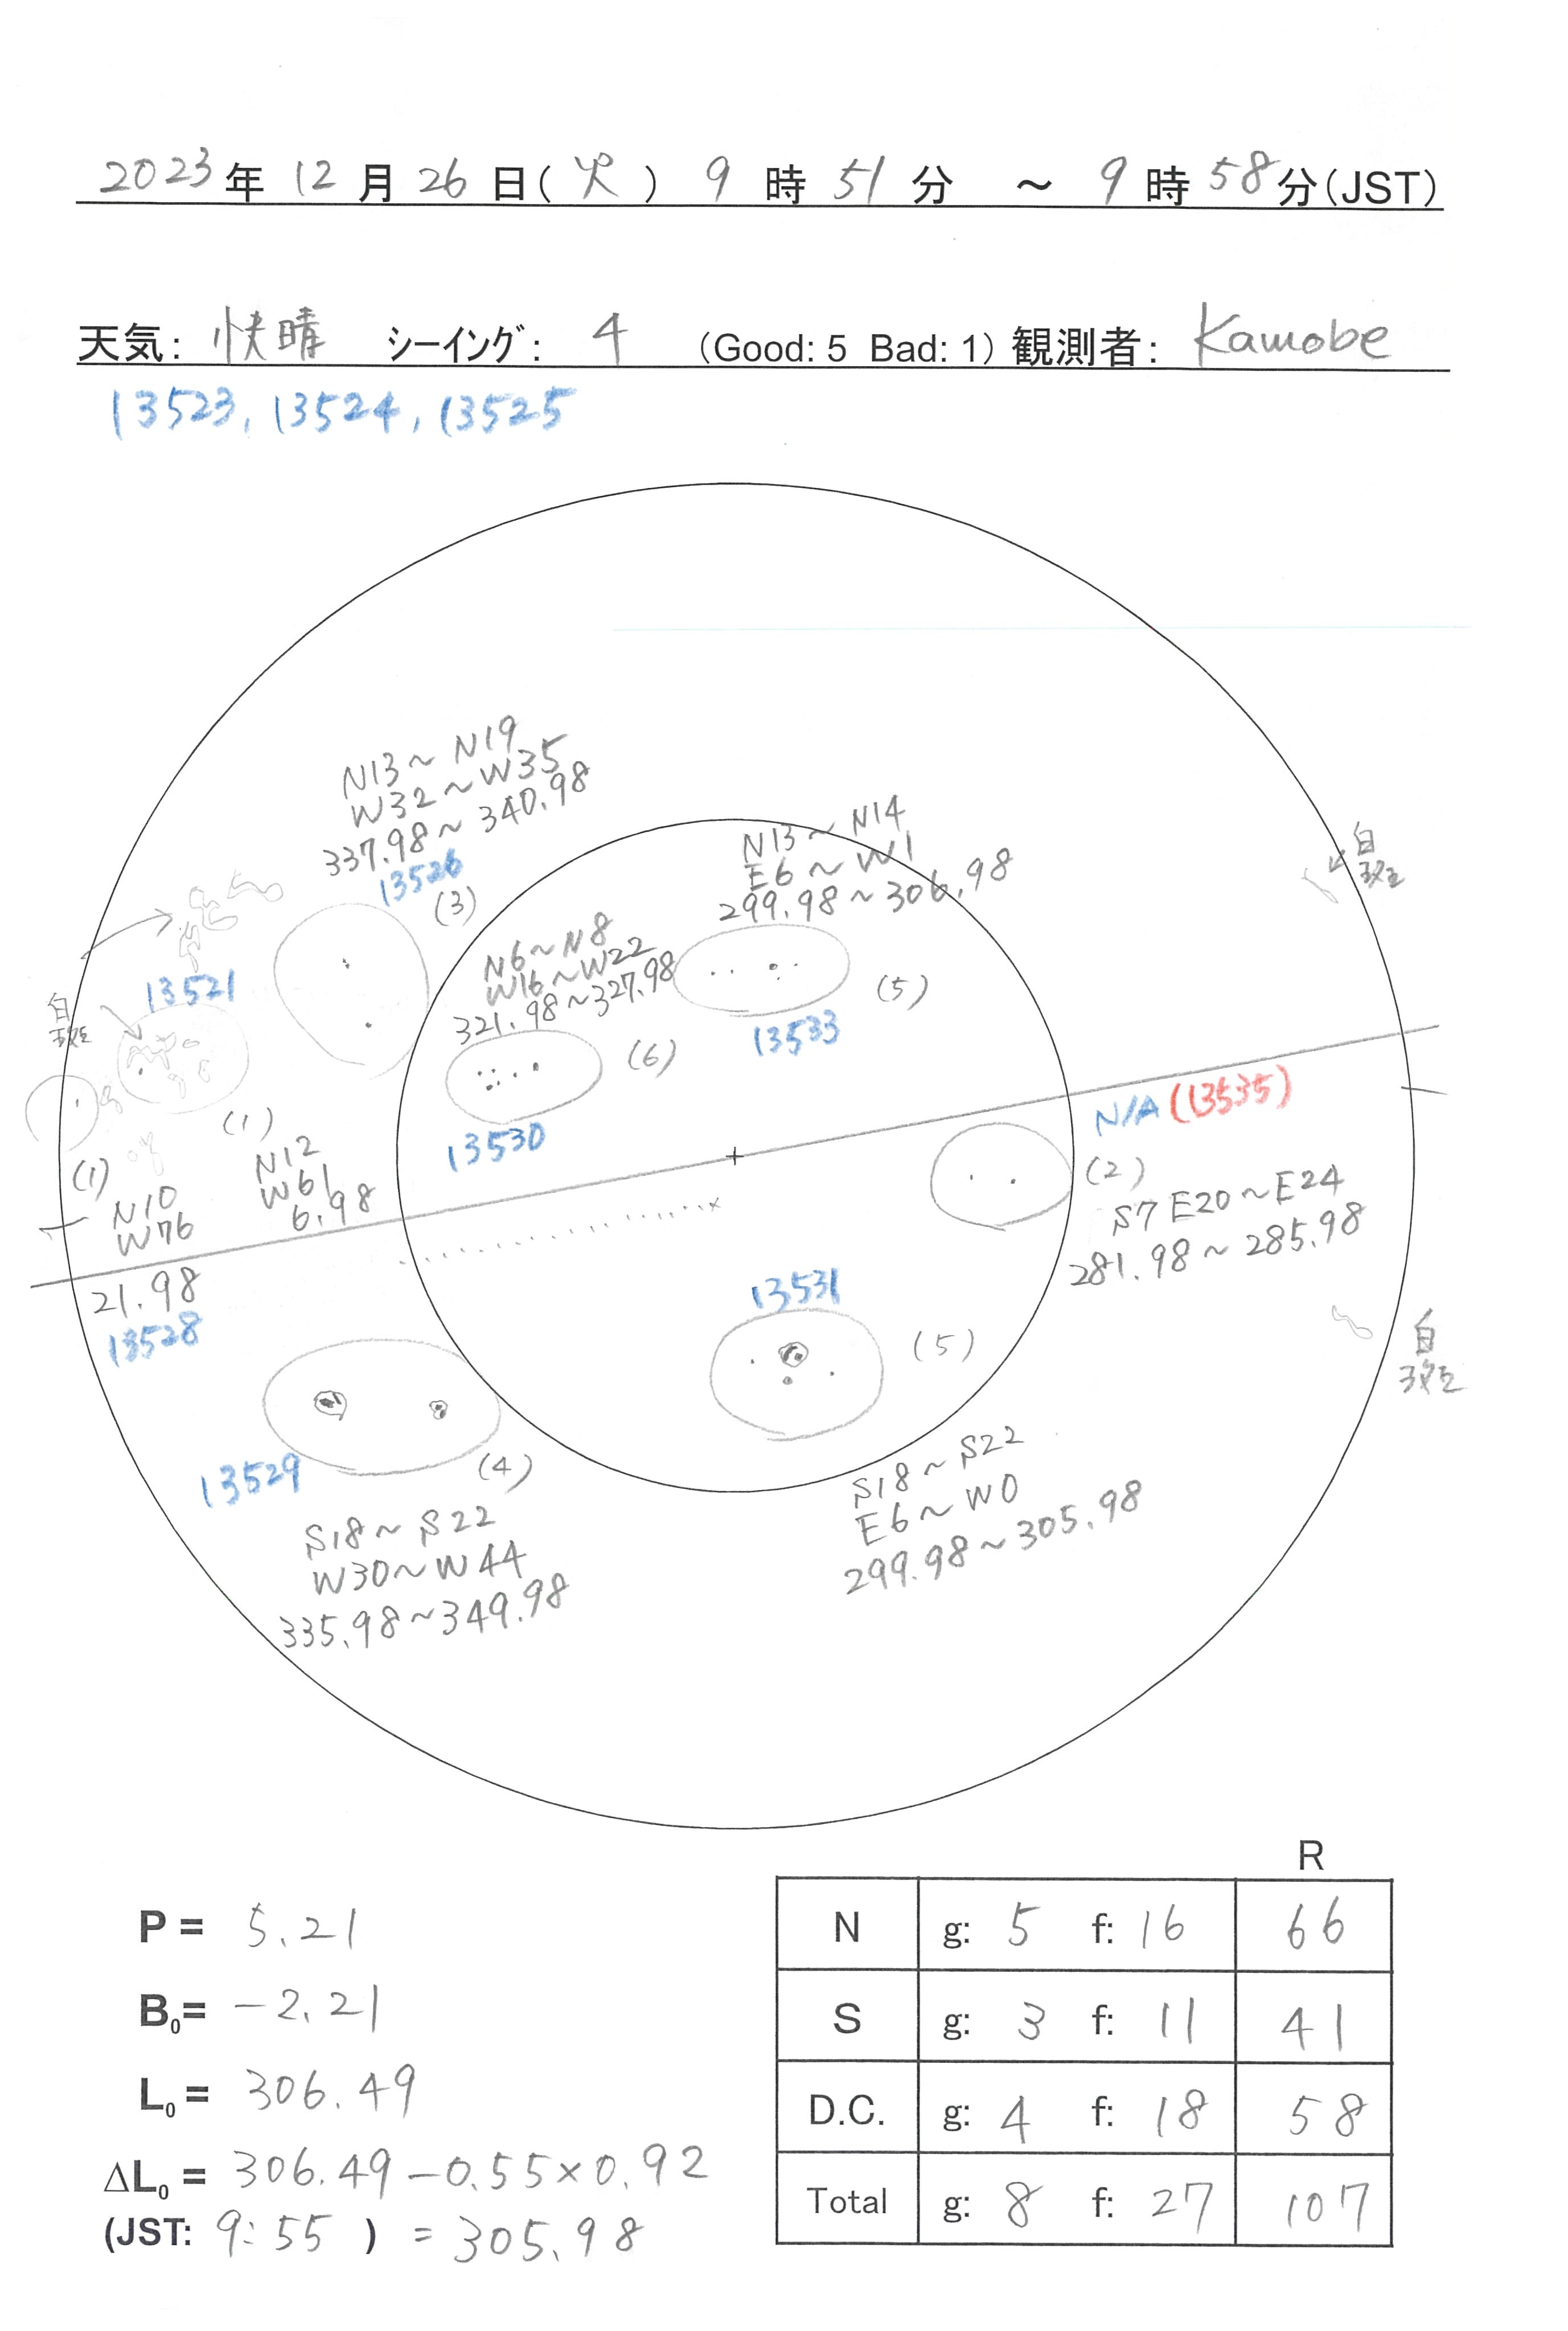 2023年 12月 26日(火) 9時 51分 ～ 9時 58分(JST)
天気: 快晴 シーイング: 4 (Good: 5 Bad: 1) 観測者: Kamobe
13523, 13524, 13525
N13～N19
W32～W35
337.98～340.98
13526
(3)
N13～N14
E6～W1
299.98～306.98
(5)
13533
白
斑
N6～N8
W16～W22
321.98～327.98
(6)
13530
13521
白
斑
(1)
N12
W61
6.98
(1)
N10
W76
21.98
13528
N/A (13535)
(2)
S7 E20～E24
281.98～285.98
13531
(5)
S18～S22
E6～W0
299.98～305.98
白
斑
13529
(4)
S18～S22
W30～W44
335.98～349.98
P = 5.21
B₀= -2.21
L₀ = 306.49
ΔL₀ = 306.49-0.55×0.92
(JST: 9:55 ) = 305.98
R
N g: 5 f: 16 66
S g: 3 f: 11 41
D.C. g: 4 f: 18 58
Total g: 8 f: 27 107